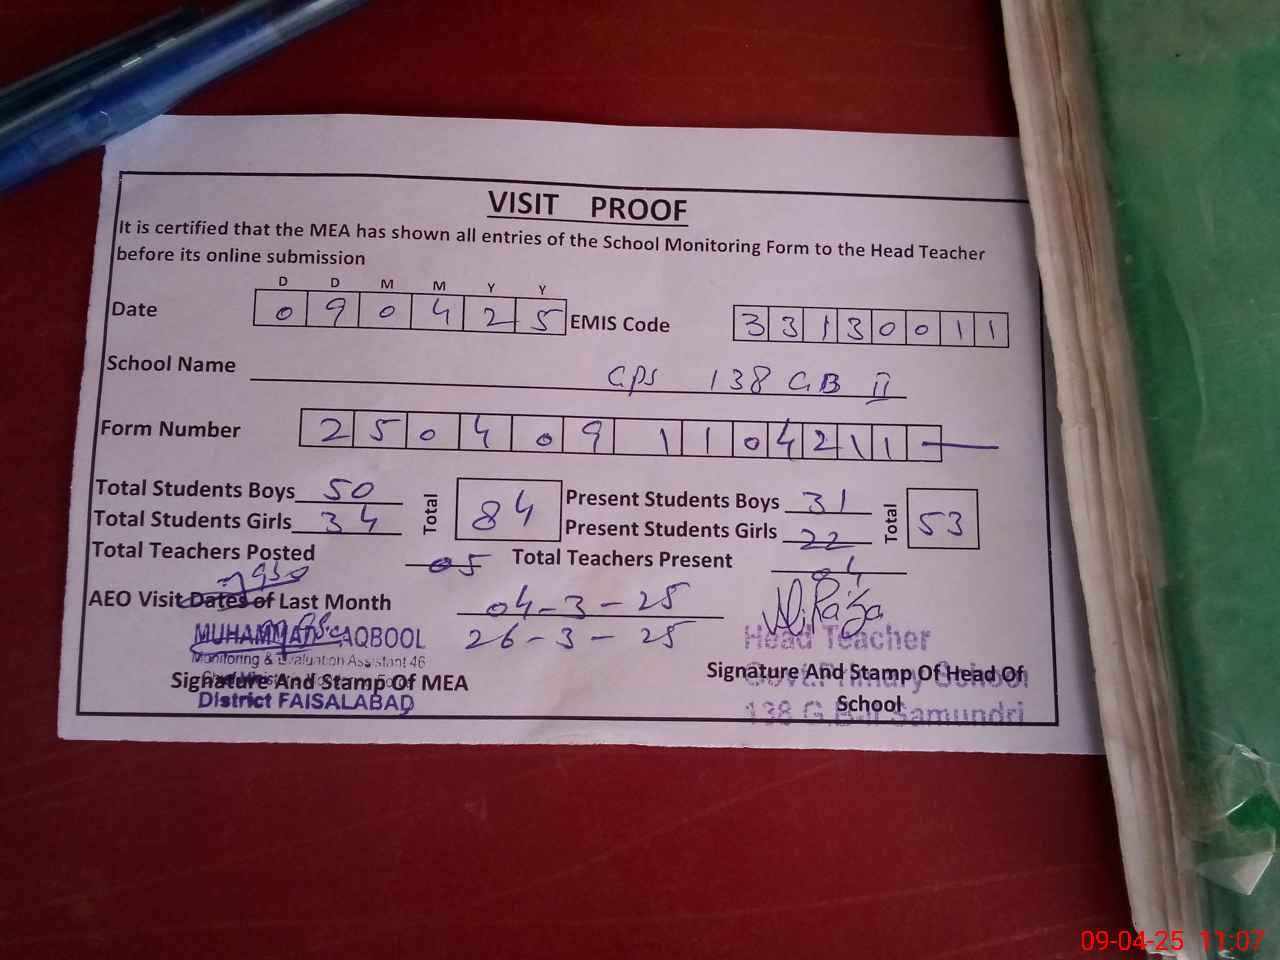 VISIT PROOF
It is certified that the MEA has shown all entries of the School Monitoring Form to the Head Teacher
before its online submission
D D M M Y Y
Date 0 9 0 4 2 5 EMIS Code 3 3 1 3 0 0 1 1
School Name GPS 138 GB II
Form Number 2 5 0 4 0 9 1 1 0 4 2 1 1
Total Students Boys 50 Total 84 Present Students Boys 31 Total 53
Total Students Girls 34 Present Students Girls 22
Total Teachers Posted 05 Total Teachers Present 04
AEO Visit Dates of Last Month 04-3-25
26-3-25
Ali Raza
MUHAMMAD MAQBOOL
Monitoring & Evaluation Assistant 46
Signature And Stamp Of MEA
District FAISALABAD
Head Teacher
Govt. Primary School
Signature And Stamp Of Head Of
School
138 G.B-II Samundri
09-04-25 11:07